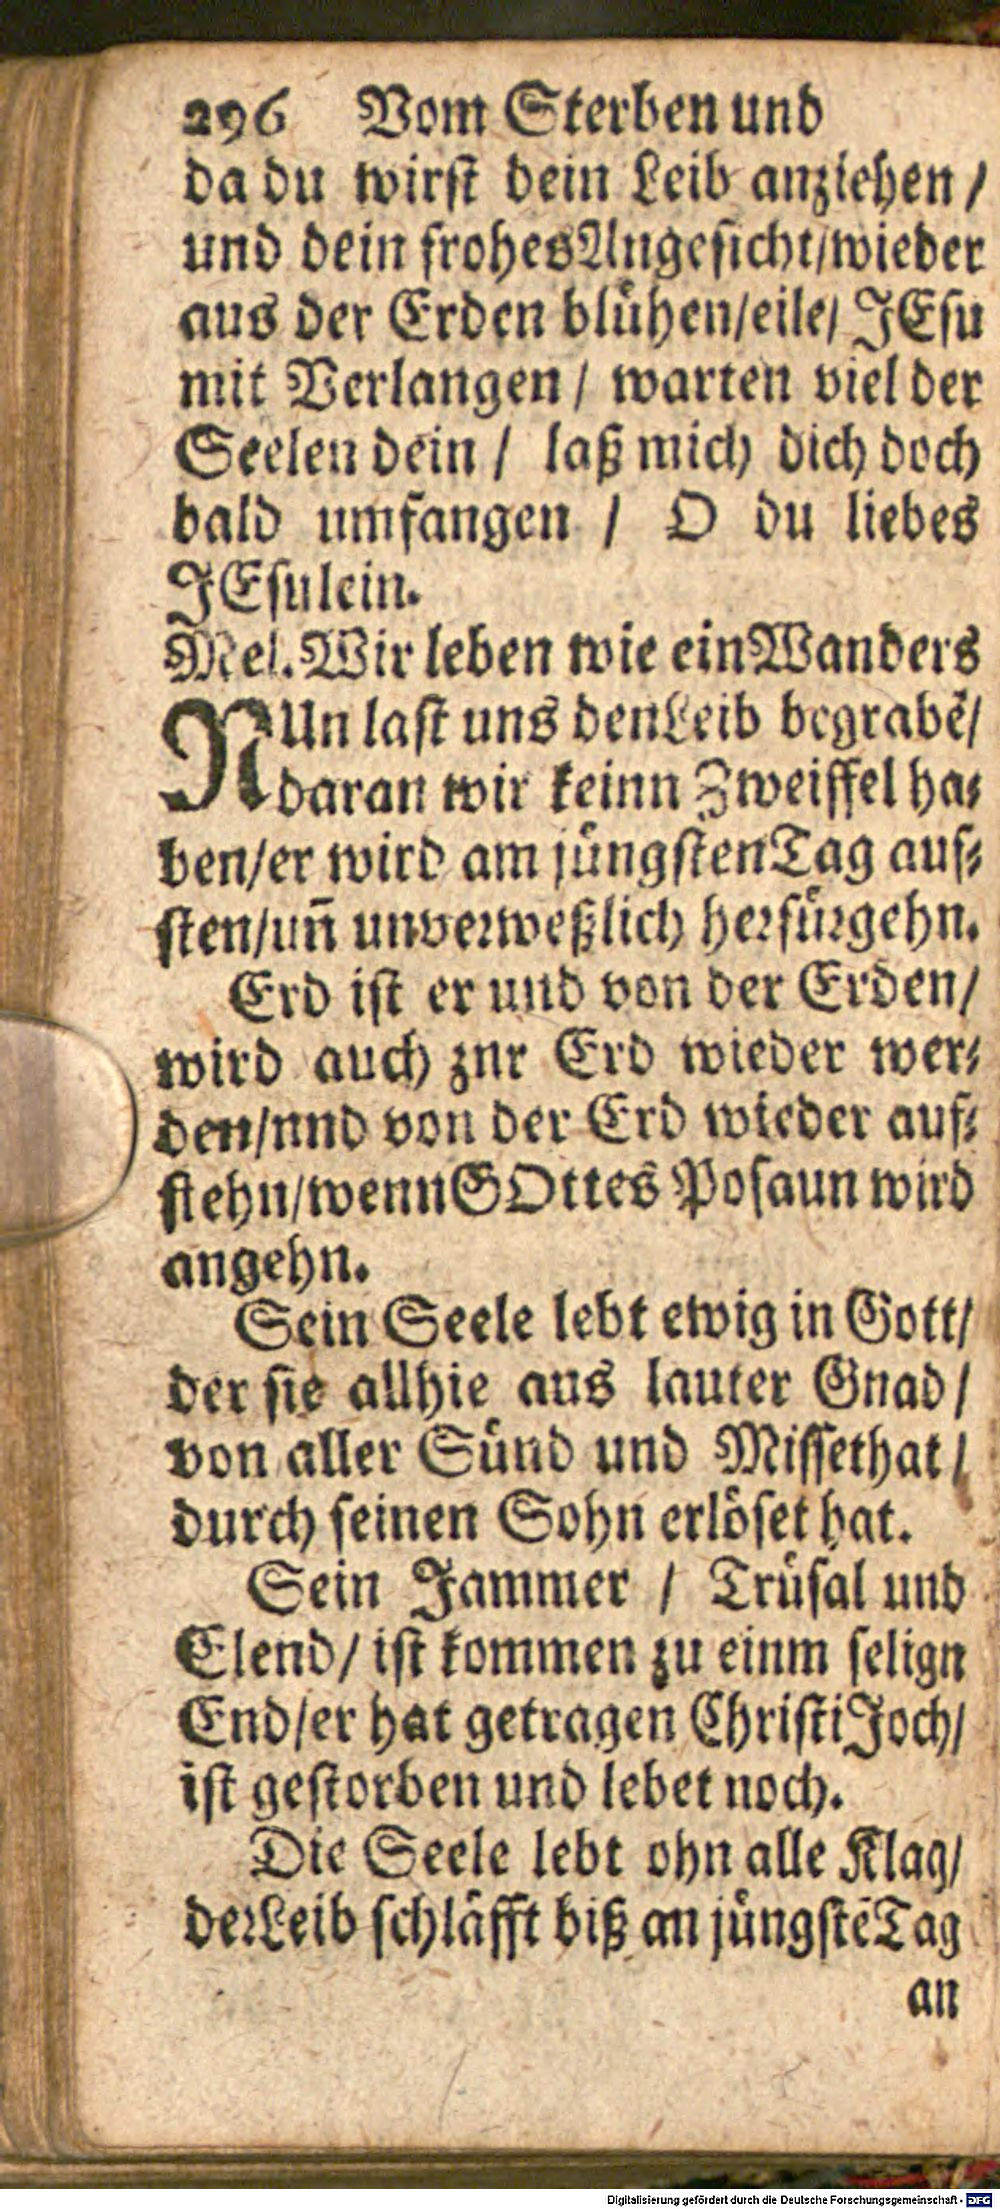 296 Vom Sterben und
da du wirst dein Leib anziehen /
und dein frohes Angesicht/wieder
aus der Erden blühen/eile/ JEsu
mit Verlangen / warten viel der
Seelen dein / laß mich dich doch
bald umfangen / O du liebes
JEsulein.
Mel. Wir leben wie ein Wanders
NUn last uns den Leib begrabẽ/
daran wir keinn Zweiffel ha-
ben/er wird am jüngsten Tag auf-
sten/uñ unverweßlich herfürgehn.
Erd ist er und von der Erden/
wird auch znr Erd wieder wer-
den/nnd von der Erd wieder auf-
stehn/wenn GOttes Posaun wird
angehn.
Sein Seele lebt ewig in Gott/
der sie allhie aus lauter Gnad /
von aller Sünd und Missethat /
durch seinen Sohn erlöset hat.
Sein Jammer / Trüsal und
Elend/ ist kommen zu einm selign
End/er hat getragen Christi Joch/
ist gestorben und lebet noch.
Die Seele lebt ohn alle Klag/
der Leib schläfft biß an jüngstẽ Tag
an
Digitalisierung gefördert durch die Deutsche Forschungsgemeinschaft - DFG